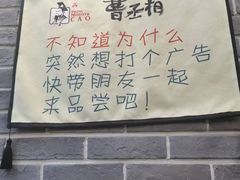 曹丞相
CAO
不知道为什么
突然想打个广告
快带朋友一起
来品尝吧！